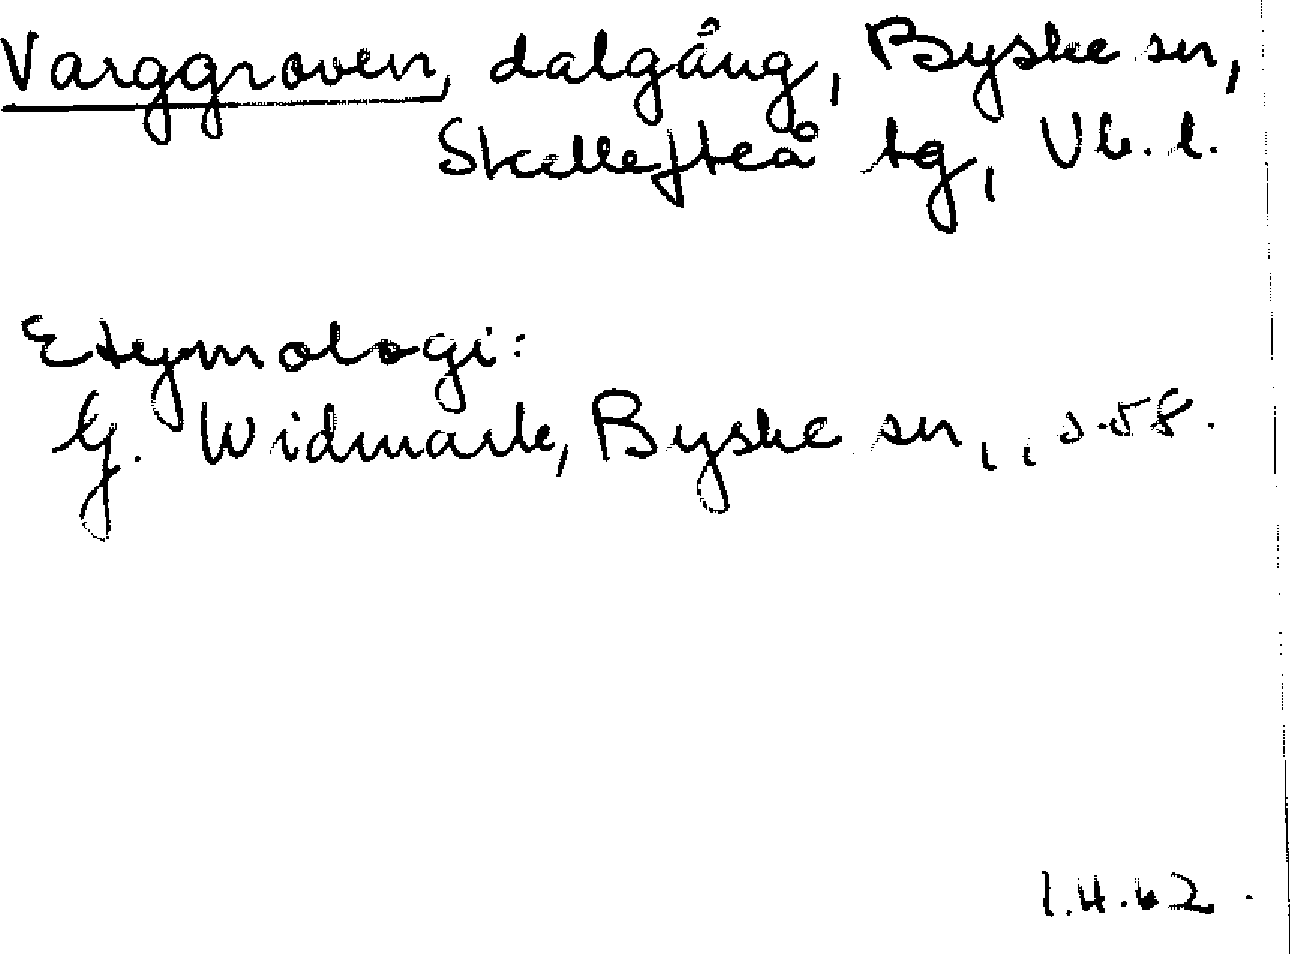 Varggroven, dalgång, Byske sn,
Skellefteå tg, Vb. l.
Etymologi:
G. Widmark, Byske sn, , s. 58.
1.4.62.